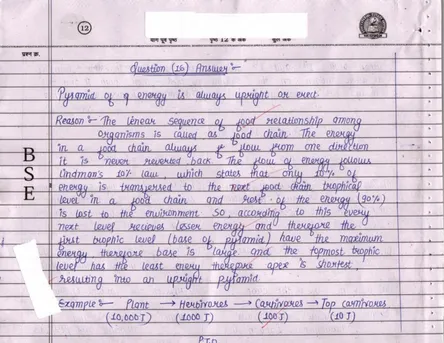 12
प्रश्न क्र.
Question (16) Answer :-
Pyramid of q energy is always upright or erect.
Reason :- The linear sequence of food relationship among
organisms is called as food chain. The energy
in a food chain always flow from one direction
it is never reversed back. The flow of energy follows
Lindman's 10% law, which states that only 10% of
energy is transfersed to the next food chain trophical
level in a food chain and rest of the energy (90%)
is lost to the environment so, according to this every
next level recieves lesser energy and therefore the
first trophic level (base of pyramid) have the maximum
energy therefore base is large and the topmost trophic
level has the least enery therefore apex is shortest
resulting into an upright pyramid.
Example :- Plant → Herbivores → Carnivores → Top carnivores
(10,000 J) (1000 J) (100 J) (10 J)
B
S
E